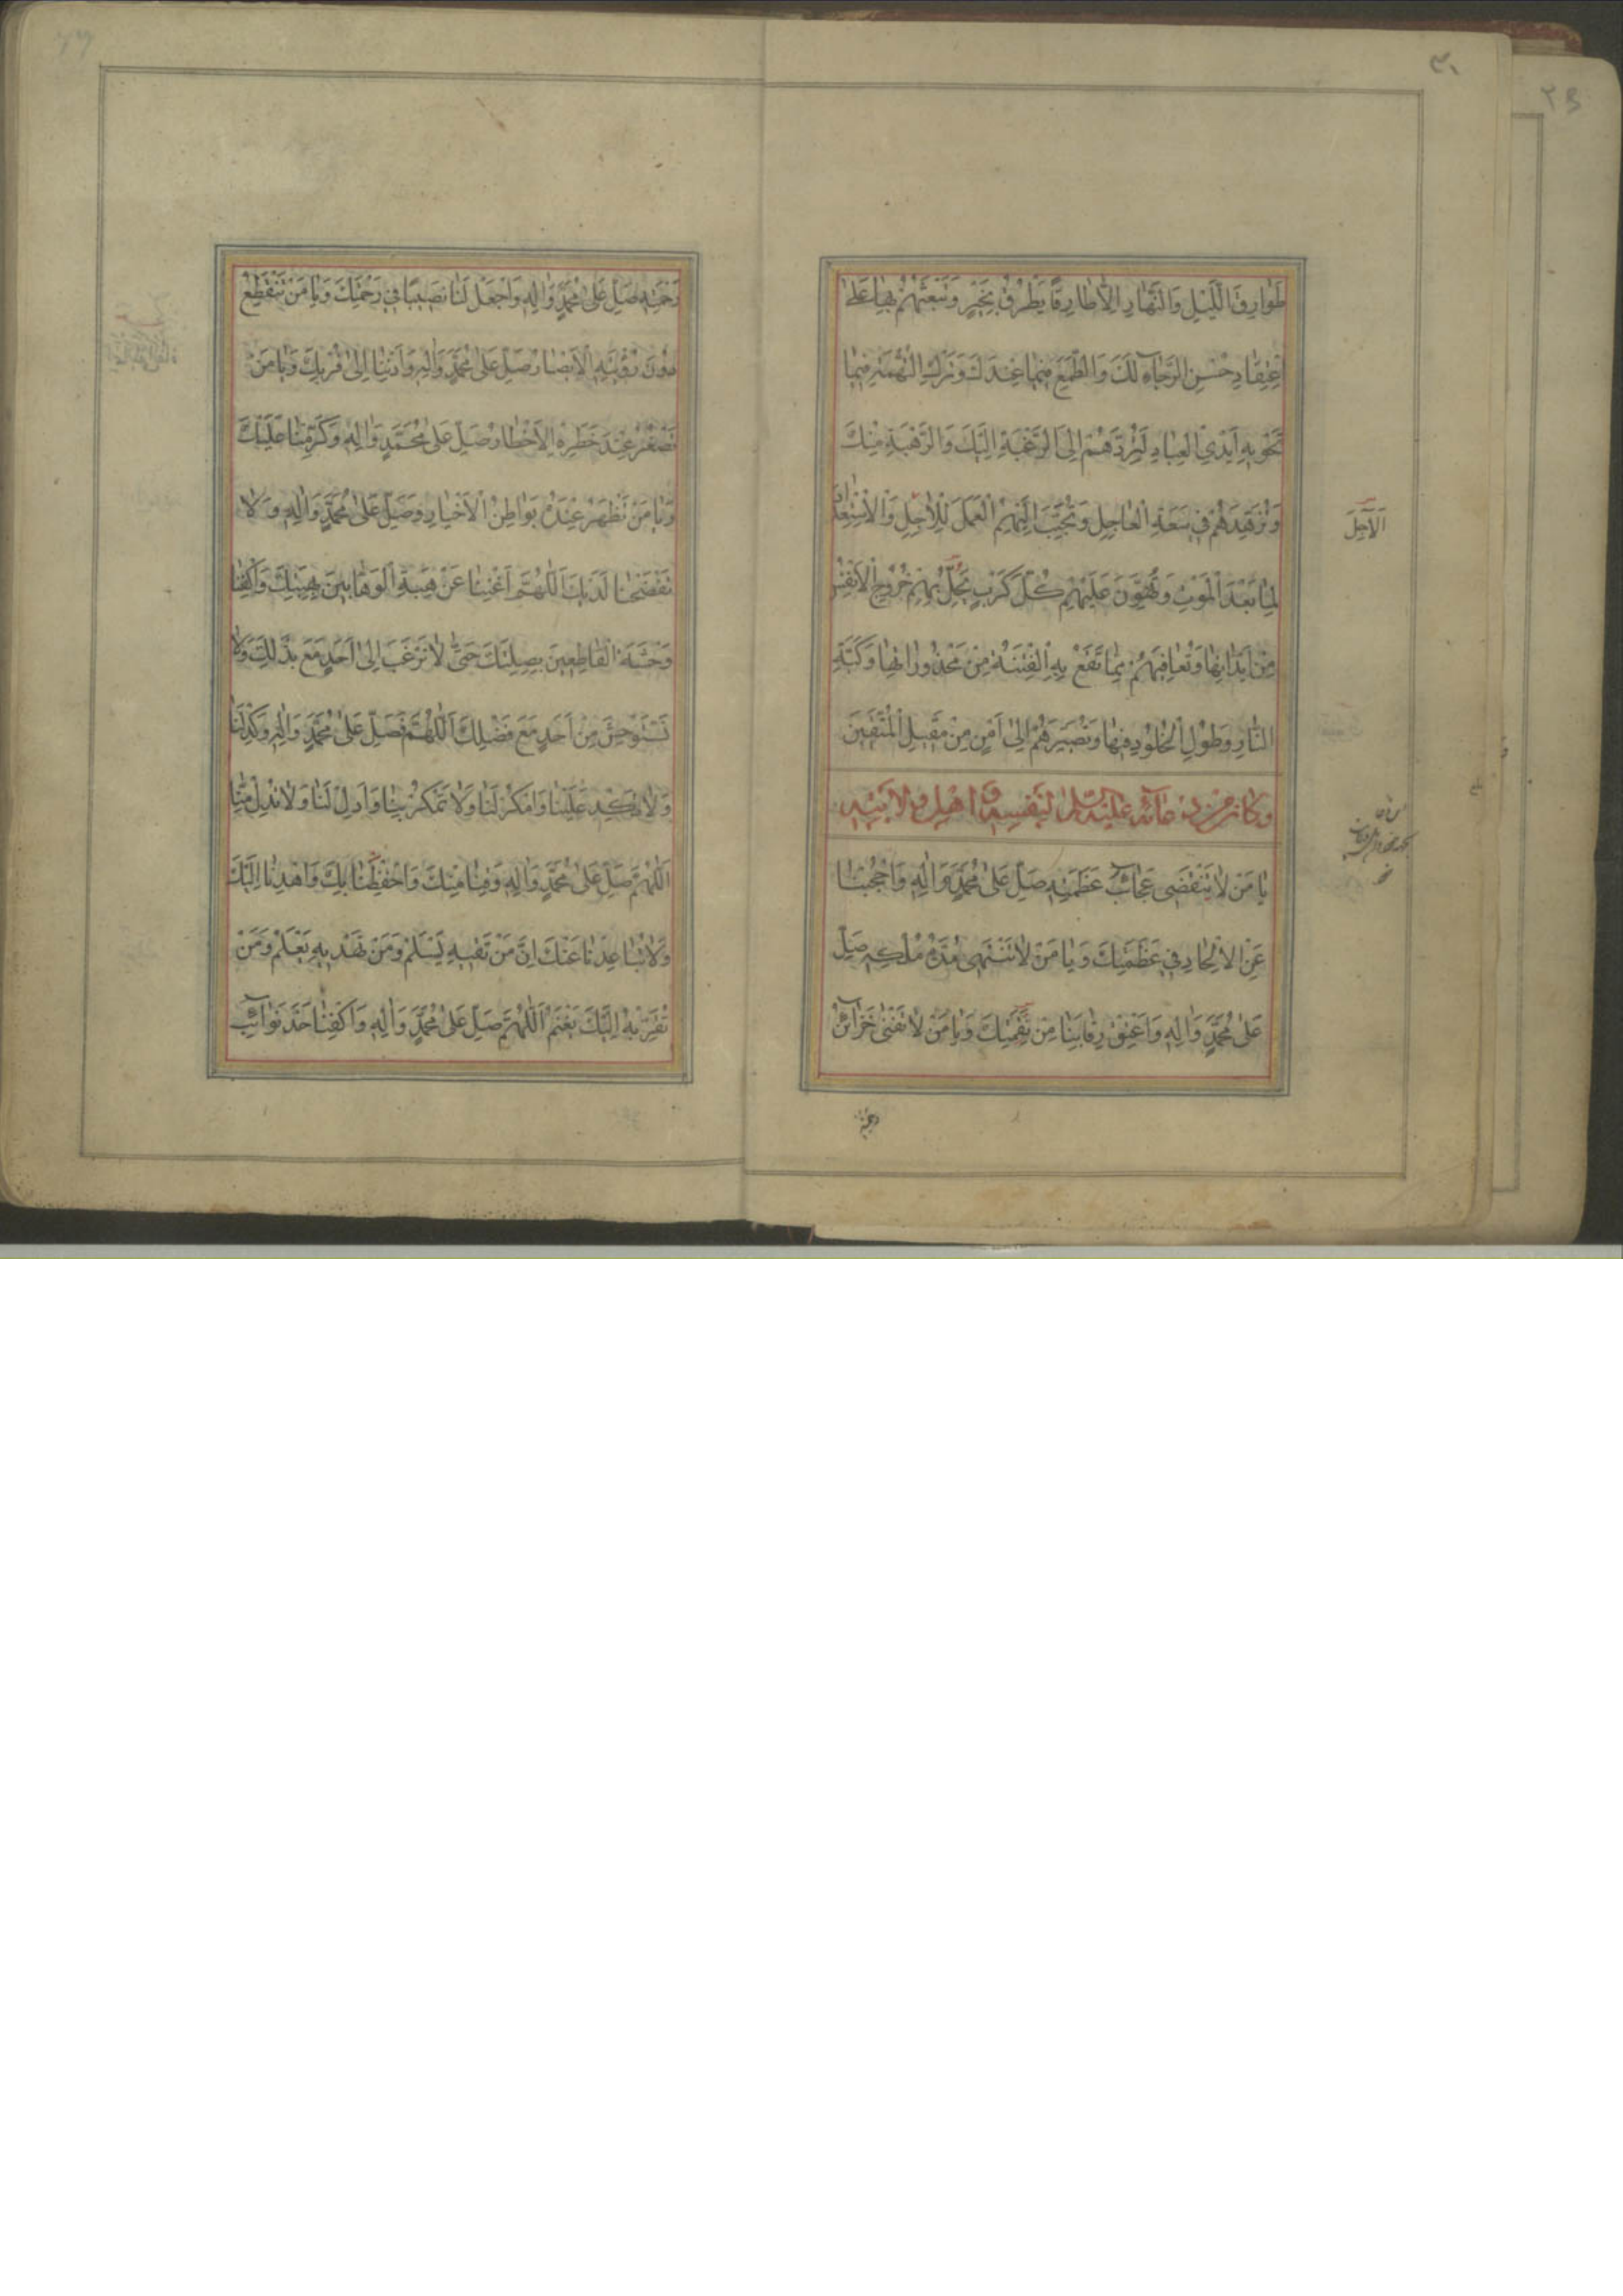 طَوارِقَ اللَّيْلِ وَالنَّهارِ اِلاّٰ طارِقًا يَطْرُقُ بِخَيْرٍ وَتَبْعَثَهُمْ بِها عَلىٰ
اعْتِقادِ حُسْنِ الرَّجاۤءِ لَكَ وَالطَّمَعِ فيما عِنْدَكَ وَتَرْكِ التُّهْمَةِ فيما
تَحْويهِ اَيْدِي الْعِبادِ لِتَرُدَّهُمْ اِلَى الرَّغْبَةِ اِلَيْكَ وَالرَّهْبَةِ مِنْكَ
وَتُزَهِّدَهُمْ في سَعَةِ الْعاجِلِ وَتُحَبِّبَ اِلَيْهِمُ الْعَمَلَ لِلْاٰجِلِ وَالْاِسْتِعْدادَ
لِما بَعْدَ الْمَوْتِ وَتُهَوِّنَ عَلَيْهِمْ كُلَّ كَرْبٍ يَحِلُّ بِهِمْ يَوْمَ خُرُوجِ الْاَنْفُسِ
مِنْ اَبْدانِها وَتُعافِيَهُمْ مِمّا تَقَعُ بِهِ الْفِتْنَةُ مِنْ مَحْذُوراتِها وَكَبَّةِ
النّارِ وَطُولِ الْخُلُودِ فيها وَتُصَيِّرَهُمْ اِلىٰ اَمْنٍ مِنْ مَقيلِ الْمُتَّقينَ
وكان من دعائه عليه السلام لنفسه و اهل ولايته
يا مَنْ لا تَنْقَضي عَجاۤئِبُ عَظَمَتِهِ صَلِّ عَلىٰ مُحَمَّدٍ وَاٰلِهِ وَاحْجُبْنا
عَنِ الْاِلْحادِ في عَظَمَتِكَ وَيا مَنْ لا تَنْتَهي مُدَّةُ مُلْكِهِ صَلِّ
عَلىٰ مُحَمَّدٍ وَاٰلِهِ وَاَعْتِقْ رِقابَنا مِنْ نَقِمَتِكَ وَيا مَنْ لا تَفْنىٰ خَزاۤئِنُ
اَلْآجِلَ
رَحْمَتِهِ صَلِّ عَلىٰ مُحَمَّدٍ وَاٰلِهِ وَاجْعَلْ لَنا نَصيبًا في رَحْمَتِكَ وَيا مَنْ تَنْقَطِعُ
دُونَ رُؤْيَتِهِ الْاَبْصارُ صَلِّ عَلىٰ مُحَمَّدٍ وَاٰلِهِ وَاَدْنِنا اِلىٰ قُرْبِكَ وَيا مَنْ
تَصْغُرُ عِنْدَ خَطَرِهِ الْاَخْطارُ صَلِّ عَلىٰ مُحَمَّدٍ وَاٰلِهِ وَكَرِّمْنا عَلَيْكَ
وَيا مَنْ تَظْهَرُ عِنْدَهُ بَواطِنُ الْاَخْبارِ وَصَلِّ عَلىٰ مُحَمَّدٍ وَاٰلِهِ وَلا
تَفْضَحْنا لَدَيْكَ اَللّٰهُمَّ اَغْنِنا عَنْ هِبَةِ الْوَهّابينَ بِهِبَتِكَ وَاكْفِنا
وَحْشَةَ الْقاطِعينَ بِصِلَتِكَ حَتّىٰ لا نَرْغَبَ اِلىٰ اَحَدٍ مَعَ بَذْلِكَ وَلا
نَسْتَوْحِشَ مِنْ اَحَدٍ مَعَ فَضْلِكَ اَللّٰهُمَّ فَصَلِّ عَلىٰ مُحَمَّدٍ وَاٰلِهِ وَكِدْ لَنا
وَلا تَكِدْ عَلَيْنا وَامْكُرْ لَنا وَلا تَمْكُرْ بِنا وَاَدِلْ لَنا وَلا تُدِلْ مِنّا
اَللّٰهُمَّ صَلِّ عَلىٰ مُحَمَّدٍ وَاٰلِهِ وَقِنا مِنْكَ وَاحْفَظْنا بِكَ وَاهْدِنا اِلَيْكَ
وَلا تُباعِدْنا عَنْكَ اِنَّ مَنْ تَقِهِ يَسْلَمْ وَمَنْ تَهْدِهِ يَعْلَمْ وَمَنْ
تُقَرِّبْهُ اِلَيْكَ يَغْنَمْ اَللّٰهُمَّ صَلِّ عَلىٰ مُحَمَّدٍ وَاٰلِهِ وَاكْفِنا حَدَّ نَواۤئِبِ